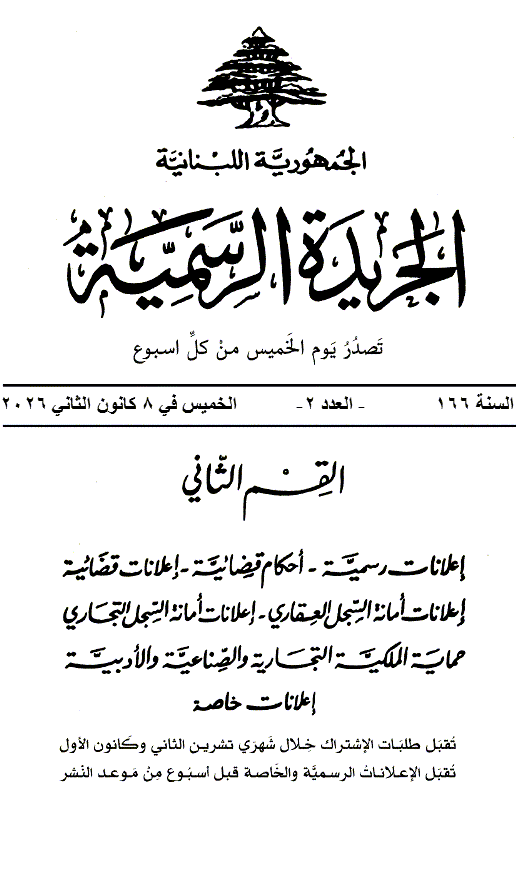 الجُمهُوريَّة اللبْنانيَّة
الجَريدَة الرسَّمِيَّة
تَصدُرُ يَوم الخَميس منْ كلِّ اسبوع
السنة ١٦٦ - العدد ٢- الخميس في ٨ كانون الثاني ٢٠٢٦
القِسْم الثّاني
إعلانات رسميَّة - أحكام قضائيَّة - إعلانات قضائية
إعلانات أمانة السِّجل العقاري - إعلانات أمانة السِّجل التجاري
حماية الملكيَّة التجارية والصِّناعيَّة والأدبيَّة
إعلانات خاصة
تُقبَل طلبَات الإشتراك خِلال شَهرَي تشرين الثاني وكَانون الأول
تُقبَل الإعلاناتُ الرسميَّة والخَاصة قبل أسبُوع مِنْ مَوعد النَشر